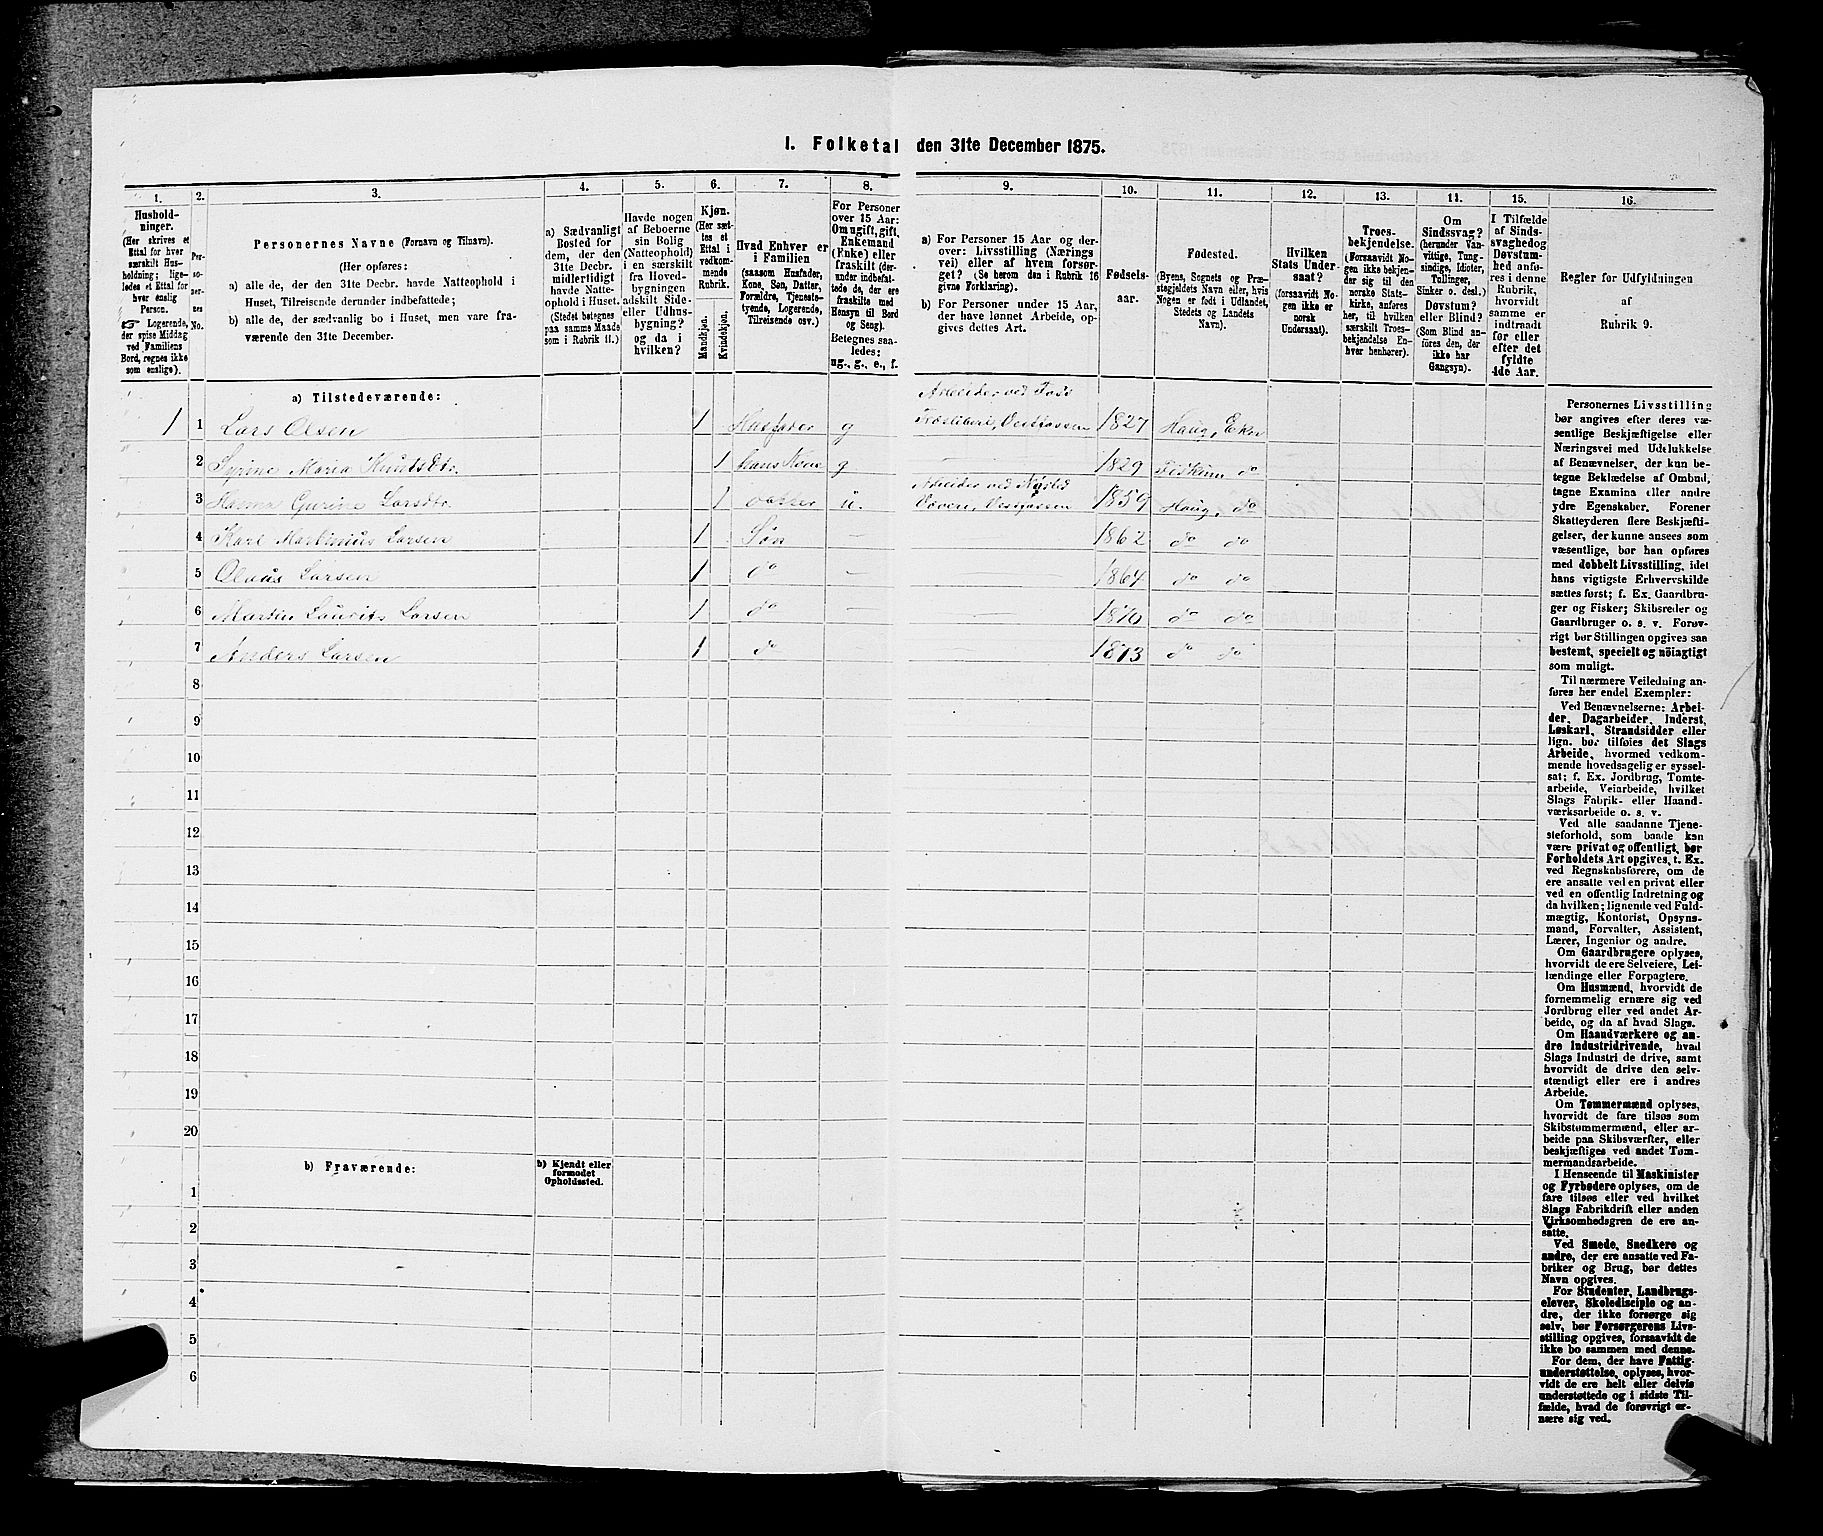 I. Folketal den 31te December 1875.
1.
Hushold-
ninger.
(Her skrives et
Ettal for hver
særskilt Hus-
holdning; lige-
ledes et Ettal for
hver enslig
Person.
☞ Logerende,
der spise Middag
ved Familiens
Bord, regnes ikke
som enslige).
2.
Per-
so-
ner-
nes
No.
3.
Personernes Navne (Fornavn og Tilnavn).
(Her opføres:
a) alle de, der den 31te Decbr. havde Natteophold i
Huset, Tilreisende derunder indbefattede;
b) alle de, der sædvanlig bo i Huset, men vare fra-
værende den 31te December.
4.
a) Sædvanligt
Bosted for
dem, der den
31te Decbr.
midlertidigt
havde Natte-
ophold i Huset.
(Stedet betegnes
paa samme Maade
som i Rubrik 11.)
5.
Havde nogen
af Beboerne
sin Bolig
(Natteophold)
i en særskilt
fra Hoved-
bygningen
adskilt Side-
eller Udhus-
bygning?
og da i
hvilken?
6.
Kjøn.
(Her sæt-
tes et
Ettal i
vedkom-
mende
Rubrik.
Mandkjøn.
Kvindekjøn.
7.
Hvad Enhver er
i Familien
(saasom Husfader,
Kone, Søn, Datter,
Forældre, Tjeneste-
tyende, Logerende,
Tilreisende osv.)
8.
For Personer
over 15 Aar:
Om ugift, gift,
Enkemand
(Enke) eller
fraskilt (der-
under indbefat-
tede de, der ere
fraskilte med
Hensyn til Bord
og Seng).
Betegnes saa-
ledes:
ug., g., e., f.
9.
a) For Personer 15 Aar og der-
over: Livsstilling (Nærings
vei) eller af hvem forsør-
get? (Se herom den i Rubrik 16
givne Forklaring).
b) For Personer under 15 Aar,
der have lønnet Arbeide, op-
gives dettes Art.
10.
Fødsels-
aar.
11.
Fødested.
(Byens, Sognets og Præ-
stegjeldets Navn eller, hvis
Nogen er født i Udlandet,
Stedets og Landets
Navn).
12.
Hvilken
Stats Under-
saat?
(forsaavidt No-
gen ikke er
norsk
Undersaat).
13.
Troes-
bekjendelse.
(Forsaavidt No-
gen ikke bekjen-
der sig til den
norske Stats-
kirke, anføres
her, til hvilken
særskilt Troes-
bekjendelse En-
hver henhører).
14.
Om
Sindssvag?
(herunder Van-
vittige, Tung-
sindige, Idioter,
Tullinger,
Sinker o. desl.)
Døvstum?
eller Blind?
(Som Blind an-
føres den, der
ikke har
Gangsyn).
15.
I Tilfælde
af Sinds-
svaghedog
Døvstum-
hed anfø-
res i denne
Rubrik,
hvorvidt
samme er
indtraadt
før eller
efter det
fyldte
4de Aar.
16.
Regler for Udfyldningen
af
Rubrik 9.
a) Tilstedeværende:
1 1 Lars Olsen 1 Husfader g Arbeider ved Vestfossen 1827 Haug, Eker
2 Syrine Maria Knutsdtr. 1 hans Kone g — 1829 Fiskum do
3 Hanna Gurine Larsdtr. 1 Datter u. Arbeider ved Væveri, Vestfossen 1859 Haug, do
4 Karl Martinius Larsen 1 Søn — 1862 do do
5 Olaus Larsen 1 do — 1864 do do
6 Martin Laurits Larsen 1 do — 1870 do do
7 Anders Larsen 1 do 1873 do do
8
9
10
11
12
13
14
15
16
17
18
19
20
b) Fraværende:
b) Kjendt eller
formodet
Opholdssted.
1
2
3
4
5
6
Personernes Livsstilling
bør angives efter deres væ-
sentlige Beskjæftigelse eller
Næringsvei med Udelukkelse
af Benævnelser, der kun be-
tegne Beklædelse af Ombud,
tagne Examina eller andre
ydre Egenskaber. Forener
Skatteyderen flere Beskjæfti-
gelser, der kunne ansees som
væsentlige, bør han opføres
med dobbelt Livsstilling, idet
hans vigtigste Erhvervskilde
sættes først; f. Ex. Gaardbru-
ger og Fisker; Skibsreder og
Gaardbruger o. s. v. Forøv-
rigt bør Stillingen opgives saa
bestemt, specielt og nöiagtigt
som muligt.
Til nærmere Veiledning an-
føres her endel Exempler:
Ved Benævnelserne: Arbei-
der, Dagarbeider, Inderst,
Løskarl, Strandsidder eller
lign. bør tilføies det Slags
Arbeide, hvormed vedkom-
mende hovedsagelig er syssel-
sat; f. Ex. Jordbrug, Tomte-
arbeide, Veiarbeide, hvilket
Slags Fabrik- eller Haand-
værksarbeide o. s. v.
Ved alle saadanne Tjene-
steforhold, som baade kan
være privat og offentligt, bør
Forholdets Art opgives, t. Ex.
ved Regnskabsførere, om de
ere ansatte ved en privat eller
ved en offentlig Indretning og
da hvilken; lignende ved Fuld-
mægtig, Kontorist, Opsyns-
mand, Forvalter, Assistent,
Lærer, Ingeniør og andre.
Om Gaardbrugere oplyses,
hvorvidt de ere Selveiere, Lei-
lændinge eller Forpagtere.
Om Husmænd, hvorvidt de
fornemmelig ernære sig ved
Jordbrug eller ved andet Ar-
beide, og da af hvad Slags.
Om Haandværkere og an-
dre Industridrivende, hvad
Slags Industri de drive, samt
hvorvidt de drive den selv-
stændigt eller ere i andres
Arbeide.
Om Tømmermænd oplyses,
hvorvidt de fare tilsøs som
Skibstømmermænd, eller ar-
beide paa Skibsværfter, eller
beskjæftiges ved andet Tøm-
mermandsarbeide.
I Henseende til Maskinister
og Fyrbødere oplyses, om de
fare tilsøs eller ved hvilket
Slags Fabrikdrift eller anden
Virksomhedsgren de ere an-
satte.
Ved Smede, Snedkere og
andre, der ere ansatte ved Fa-
briker og Brug, bør dettes
Navn opgives.
For Studenter, Landbrugs-
elever, Skoledisciple og an-
dre, der ikke forsørge sig
selv, bør Forsørgerens Livs-
stilling opgives, forsaavidt de
ikke bo sammen med denne.
For dem, der have Fattig-
understøttelse, oplyses, hvor-
vidt de ere helt eller delvis
understøttede og i sidste Til-
fælde, hvad de forøvrigt er-
nære sig ved.